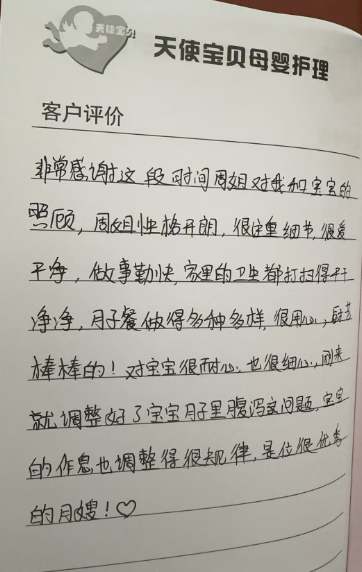 天使宝贝
天使宝贝母婴护理
客户评价
非常感谢这段时间周姐对我和宝宝的
照顾，周姐性格开朗，很注重细节，很爱
干净，做事勤快，家里的卫生都打扫得干干
净净，月子餐做得多种多样，很用心，厨艺
棒棒的！对宝宝很耐心也很细心，刚来
就调整好了宝宝月子里腹泻这问题，宝宝
的作息也调整得很规律，是位很优秀
的月嫂！♡